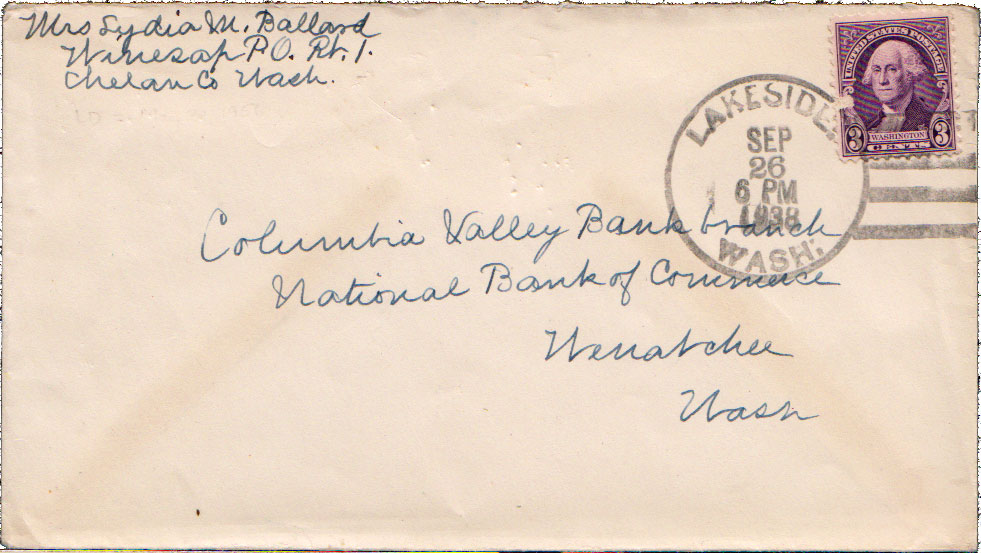 Mrs Lydia M. Ballard
Winesap P.O. Rt. 1.
Chelan Co Wash.
UNITED STATES POSTAGE
3 WASHINGTON 3
CENTS
LAKESIDE,
SEP
26
6 PM
1938
WASH.
Columbia Valley Bank branch
National Bank of Commerce
Wenatchee
Wash